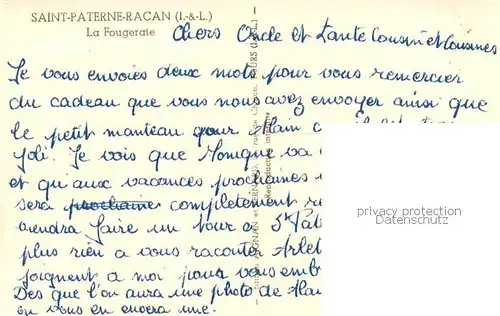 SAINT-PATERNE-RACAN (I.-&L.)
La Fougeraie
Chers Oncle et Tante Cousin et Cousines
Je vous envoies deux mots pour vous remercier
du cadeau que vous nous avez envoyer ainsi que
le petit manteau pour Alain
joli. Je vois que Monique va
et qu'aux vacances prochaines
sera prochaine completement
viendra faire un tour a St Pat
plus rien a vous raconter Arlet
joignent a moi pour vous emb
Des que l'on aura une photo de Alai
on vous en enverra une.
privacy protection
Datenschutz